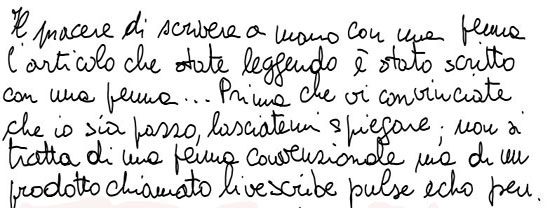 Il piacere di scrivere a mano con una penna
l'articolo che state leggendo è stato scritto
con una penna... Prima che vi convinciate
che io sia pazzo, lasciatemi spiegare; non si
tratta di una penna convenzionale ma di un
prodotto chiamato livescribe pulse echo pen.